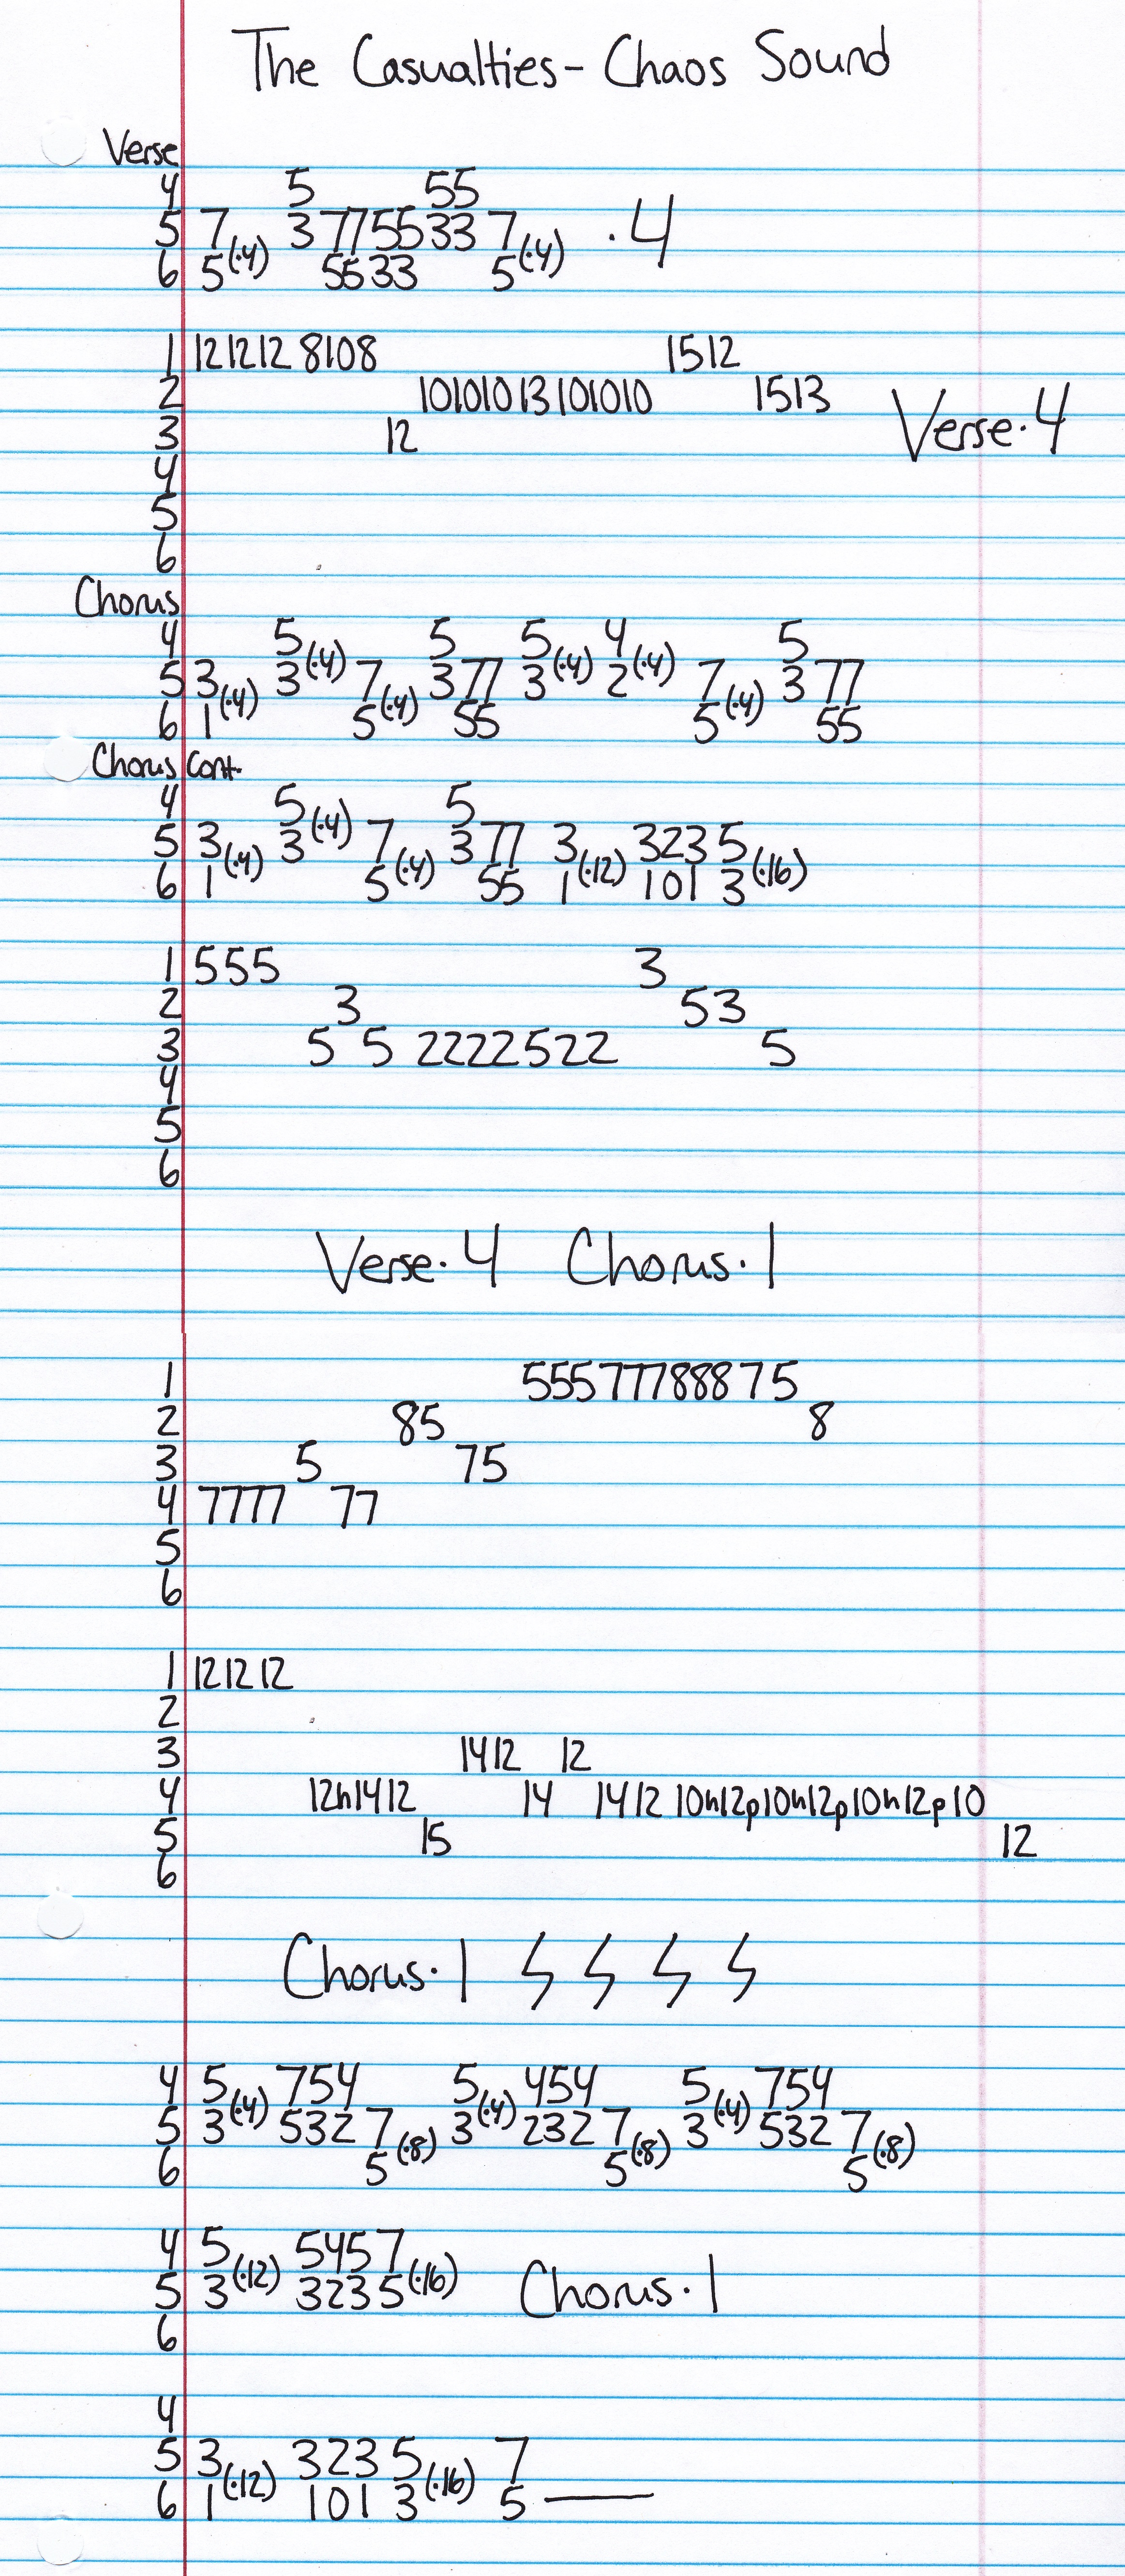 The Casualties - Chaos Sound
Verse
4 5 55
5 7(·4) 3 77 55 33 7(·4) ·4
6 5 55 33 5
1 12 12 12 8 10 8 15 12
2 10 10 10 13 10 10 10 15 13 Verse·4
3 12
4
5
6
Chorus
4 5(·4) 5 5(·4) 4(·4) 5
5 3(·4) 3 7(·4) 3 77 3 2 7(·4) 3 77
6 1 5 55 5 55
Chorus Cont.
4 5(·4) 5
5 3(·4) 3 7(·4) 3 77 3(·12) 323 5(·16)
6 1 5 55 1 101 3
1 555 3
2 3 53
3 5 5 2222522 5
4
5
6
Verse·4 Chorus·1
1 555 777 888 7 5
2 85 8
3 5 75
4 7777 77
5
6
1 12 12 12
2
3 14 12 12
4 12h14 12 14 14 12 10h12p10h12p10h12p10
5 15 12
6
Chorus·1
4 5(·4) 754 5(·4) 454 5(·4) 754
5 3 532 7(·8) 3 232 7(·8) 3 532 7(·8)
6 5 5 5
4 5(·12) 5457(·16)
5 3 3235 Chorus·1
6
4
5 3(·12) 323 5(·16) 7
6 1 101 3 5